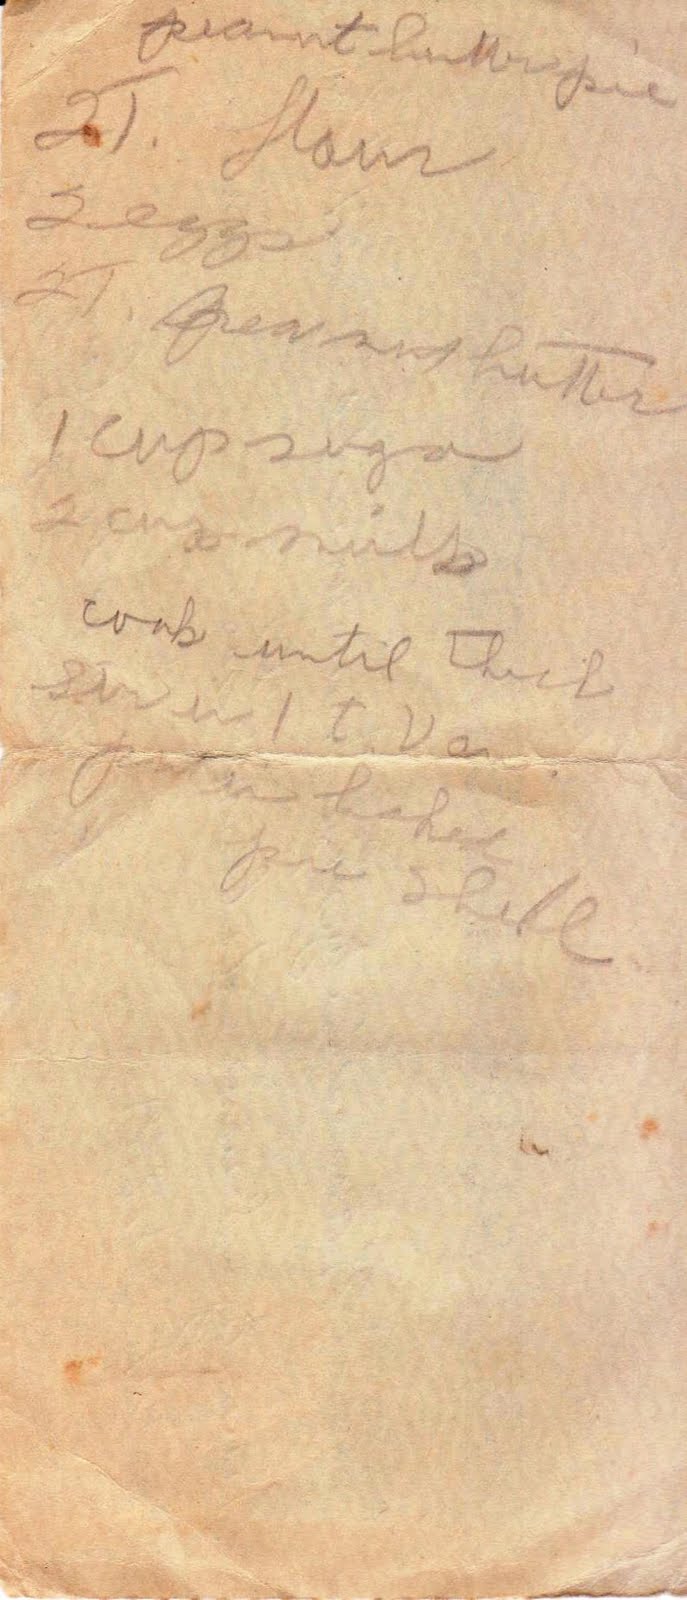 peanut butter pie
2T. flour
2 eggs
2T. Peanut butter
1 cup suga
2 cups milk
cook until thick
stir in 1 t. Va.
pour in baked
pie shell